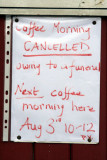 Coffee Morning
CANCELLED
owing to a funeral
Next coffee
morning here
Aug 3rd 10-12